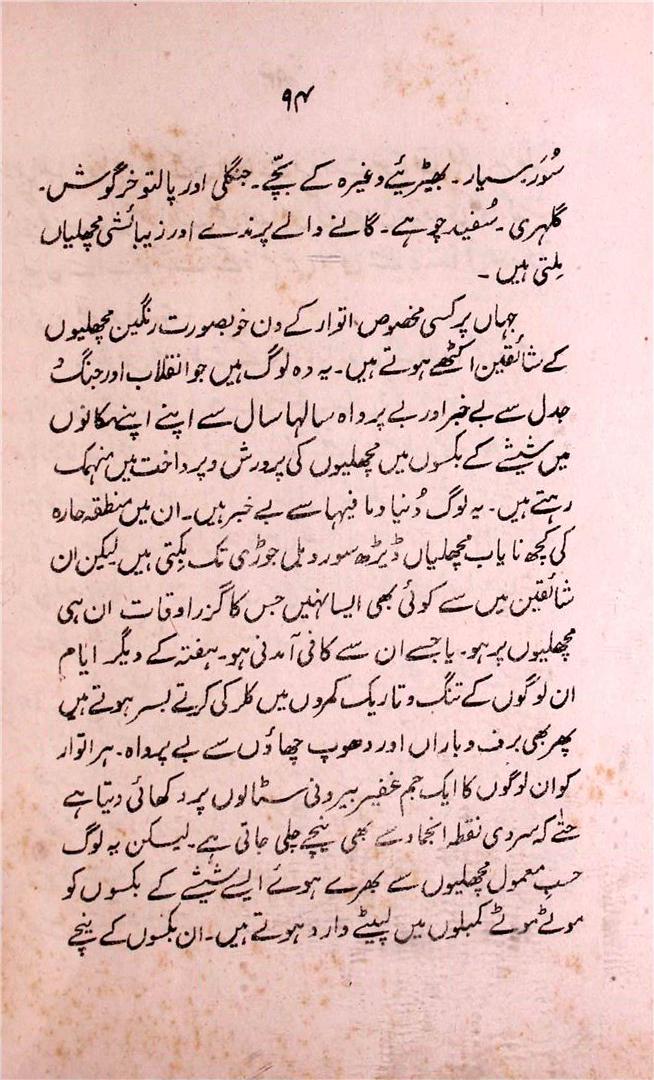 ۹۴
سُوَر۔ سیار۔ بھیڑیئے وغیرہ کے بچّے۔ جنگلی اور پالتو خرگوش۔
گلہری۔ سُفید چوہے۔ گانے والے پرندے اور زیبائشی مچھلیاں
مِلتی ہیں۔
جہاں پر کسی مخصوص اتوار کے دن خوبصورت رنگین مچھلیوں
کے شائقین اکٹھے ہوتے ہیں۔ یہ وہ لوگ ہیں جو انقلاب اور جنگ و
جدل سے بے خبر اور بے پرواہ سالہا سال سے اپنے اپنے مکانوں
میں شیشے کے بکسوں میں مچھلیوں کی پرورش و پرداخت میں منہمک
رہتے ہیں۔ یہ لوگ دُنیا و ما فیہا سے بے خبر ہیں۔ ان میں منطقہ حارہ
کی کچھ نایاب مچھلیاں ڈیڑھ سو روبل جوڑی تک بکتی ہیں لیکن ان
شائقین میں سے کوئی بھی ایسا نہیں جس کا گزر اوقات ان ہی
مچھلیوں پر ہو۔ یا جسے ان سے کافی آمدنی ہو۔ ہفتہ کے دیگر ایام
ان لوگوں کے تنگ و تاریک کمروں میں کلرکی کرتے بسر ہوتے ہیں
پھر بھی برف و باراں اور دھوپ چھاؤں سے بے پرواہ۔ ہر اتوار
کو ان لوگوں کا ایک جم غفیر بیرونی سٹالوں پر دکھائی دیتا ہے
حتےٰ کہ سردی نقطہ انجماد سے بھی نیچے چلی جاتی ہے۔ لیکن یہ لوگ
حسبِ معمول مچھلیوں سے بھرے ہوئے ایسے شیشے کے بکسوں کو
موٹے موٹے کمبلوں میں لپیٹے وارد ہوتے ہیں۔ ان بکسوں کے نیچے